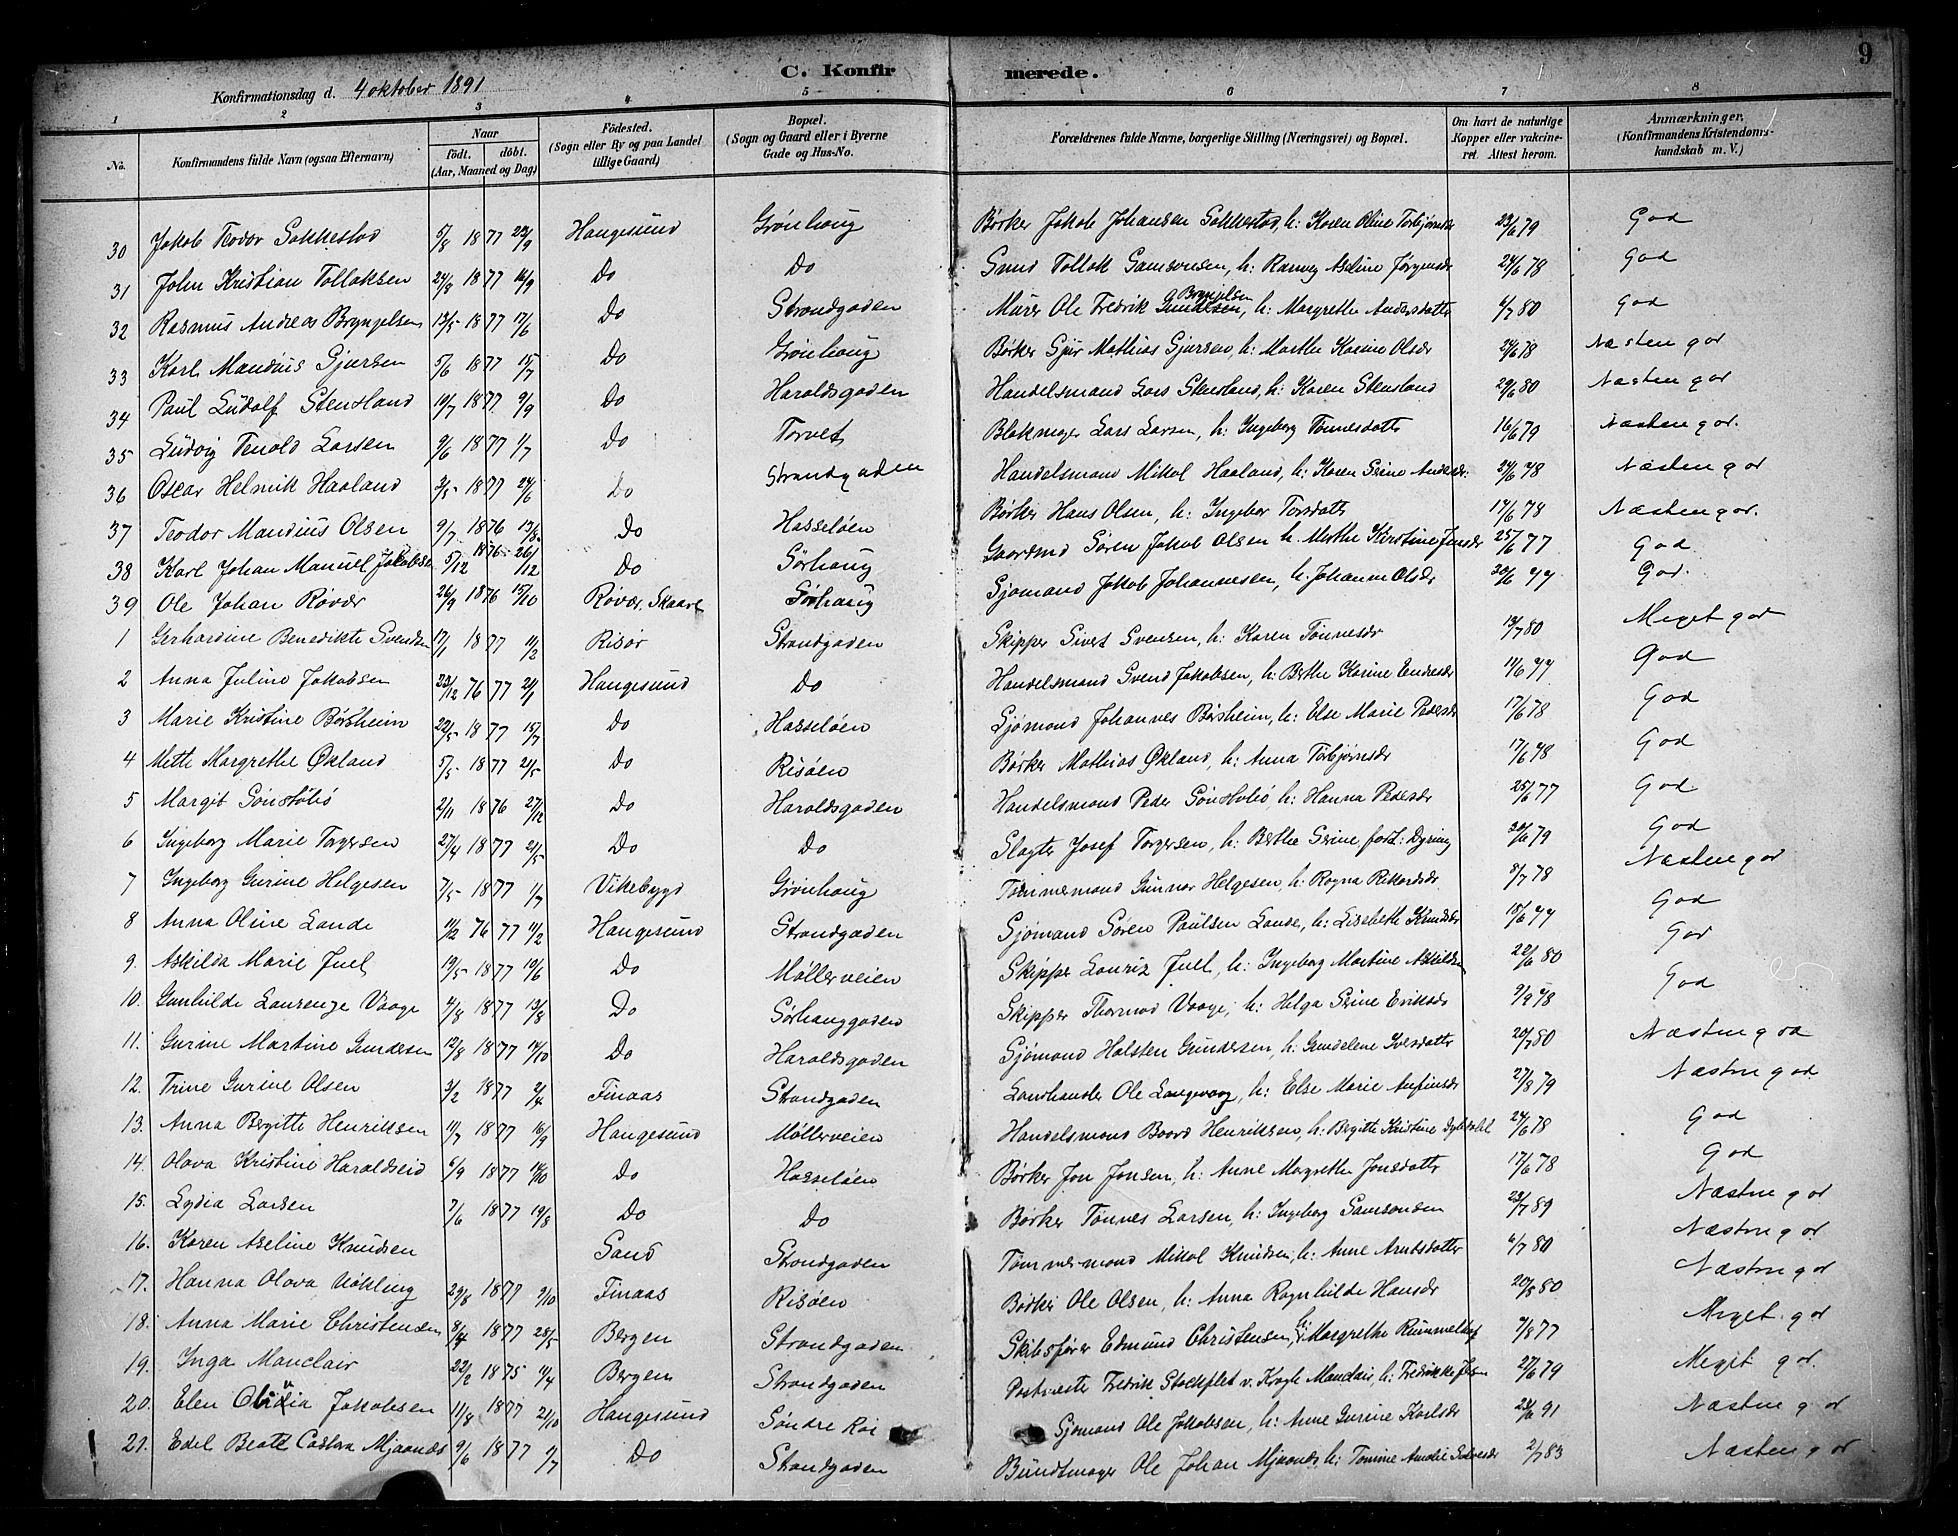 C. Konfirmerede. 9
Konfirmationsdag d. 4 oktober 1891
1 2 3 4 5 6 7 8
No. Konfirmandens fulde Navn (ogsaa Efternavn) Naar født. døbt. (Aar, Maaned og Dag) Fødested. (Sogn eller By og paa Landet tillige Gaard) Bopæl. (Sogn og Gaard eller i Byerne Gade og Hus-No.) Forældrenes fulde Navne, borgerlige Stilling (Næringsvei) og Bopæl. Om havt de naturlige Kopper eller vakcineret. Attest herom. Anmærkninger. (Konfirmandens Kristendomskundskab m. V.)
30 Jakob Teodor Sakkestad 5/8 1877 22/9 Haugesund Grønhaug Børker Jakob Johansen Sakkestad, h: Karen Oline Torbjørnsdr 23/6 79 God
31 John Kristian Tollaksen 24/8 1877 16/9 Do Do Smed Tollak Samsonsen, h: Ranveg Aseline Jørgensdr 24/6 78 God
32 Rasmus Andreas Bryngelsen 13/5 1877 17/6 Do Strandgaden Murer Ole Fredrik Bryngelsen, h: Margrethe Andersdatter 6/7 80 God
33 Karl Mandius Gjursen 5/6 1877 15/7 Do Grønhaug Børker Gjur Mathias Gjursen, h: Marthe Karine Olsdr 24/6 78 Næsten god
34 Paul Ludolf Stensland 19/7 1877 9/9 Do Haraldsgaden Handelsmand Lars Stensland, h: Karen Stensland 29/6 80 Næsten god
35 Ludvig Tenold Larsen 9/6 1877 1/7 Do Torvet Blokmager Lars Larsen, h: Ingeborg Tønnesdatter 16/6 79 Næsten god.
36 Oscar Helmik Haaland 3/5 1877 24/6 Do Strandgaden Handelsmand Mikal Haaland, h: Karen Serine Andersdr: 24/6 78 Næsten god
37 Teodor Mandius Olsen 9/7 1876 13/8 Do Hasseløen Børker Hans Olsen, h: Ingebor Torsdatter 17/6 78 Næsten god.
38 Karl Johan Manuel Jakobsen 5/12 1876 26/12 Do Sørhaug Gaardmd Søren Jakob Olsen h. Merthe Kirstine Jensdr 25/6 77 God
39 Ole Johan Røvær 26/9 1876 15/10 Røvær, Skaare Sørhaug Sjømand Jakob Johannesen, h: Johanne Olsdr 20/6 77 God.
1 Gerhardine Benedikte Svendsen 17/1 1877 11/2 Risør Strandgaden Skipper Sivert Svensen, h: Karen Tønnesdr 13/7 80 Meget god
2 Anna Juline Jakobsen 23/12 76 77 21/1 Haugesund Do Handelsmand Svend Jakobsen, h: Berthe Karine Endresdr 19/6 77 God
3 Marie Kristine Børsheim 22/5 1877 15/7 Do Hasseløen Sjømand Johannes Børsheim, h: Else Marie Pedersdr 17/6 78 God
4 Mette Margrethe Økland 5/5 1877 21/5 Do Risøen Børker Mathias Økland, h: Anna Torbjørnsdr 17/6 78 God
5 Margit Sønstabø 2/11 1876 27/12 Do Haraldsgaden Handelsmand Peder Sønstabø, h: Hanna Pedersdr 25/6 77 God
6 Ingeborg Marie Torgersen 27/4 1877 21/5 Do Do Slagter Josef Torgersen, h: Berthe Serine født: Dyring 30/6 79 God
7 Ingeborg Gurine Helgesen 7/5 1877 1/7 Vikebygd Grønhaug Tømmermand Gunnar Helgesen, h: Ragna Rikardsdr 8/7 78 Næsten god
8 Anna Oline Lande 11/12 76 77 11/2 Haugesund Strandgaden Sjømand Søren Paulsen Lande, h: Lisebeth Knudsdr 18/6 77 God
9. Askilda Marie Juel 19/5 1877 10/6 Do Møllerveien Skipper Lauriz Juel, h: Ingeborg Martine Askildsen 22/6 80 God
10. Gunhilde Laurenze Vaage 4/8 1877 13/8 Do Sørhauggaden Skipper Thormod Vaage, h: Helga Serine Eriksdr 9/9 78 God
11. Gurine Martine Gundersen 12/8 1877 14/10 Do Haraldsgaden Sjømand Halsten Gundersen, h: Gundelene Iversdatter 20/7 80 Næsten god
12. Trine Gurine Olsen 3/2 1877 2/4 Finaas Strandgaden Landhandler Ole Langevaag, h: Else Marie Anfinsdr 27/8 79 Næsten god
13. Anna Bergitte Henriksen 11/7 1877 16/9 Haugesund Møllerveien Handelsmand Baard Henriksen, h: Bergitte Kristine 24/6 78 God
14. Olava Kristine Haraldseid 6/9 1877 14/10 Do Hasseløen Børker Jon Jonsen, h: Anne Margrethe Jonsdatter 17/6 78 God
15. Lydia Larsen 7/6 1877 19/8 Do Do Børker Tønnes Larsen, h: Ingeborg Samsonsen 23/7 89 Næsten god
16. Karen Aseline Knudsen Sand Strandgaden Tømmermand Mikal Knudsen, h: Anne Arntsdatter 6/7 80 Næsten god
17. Hanna Olava Vøkling 29/8 1877 9/10 Finaas Risøen Børker Ole Olsen, h: Anna Ragnhilde Hansdr 20/8 80 Næsten god
18. Anna Marie Christensen 8/4 1877 28/5 Bergen Strandgaden Skibsfører Edmund Christensen, h: Margrethe Rummelhof 9/8 77 Meget god
19. Inga Manclair 22/2 1875 11/4 Bergen Strandgaden Postmester Fredrik Stockflet v. Krogh Manclair, h: Fredrikke 27/6 79 Meget god.
20. Elen Olivia Jakobsen 11/8 1877 21/10 Haugesund Søndre Kai Sjømand Ole Jakobsen, h: Anne Gurine Karlsdr 23/6 91 Næsten god
21. Edel Beate Castra Mjaanes 9/6 1877 1/7 Do Strandgaden Bundtmager Ole Johan Mjaanes h: Tomine Amalie 2/7 83 Næsten god